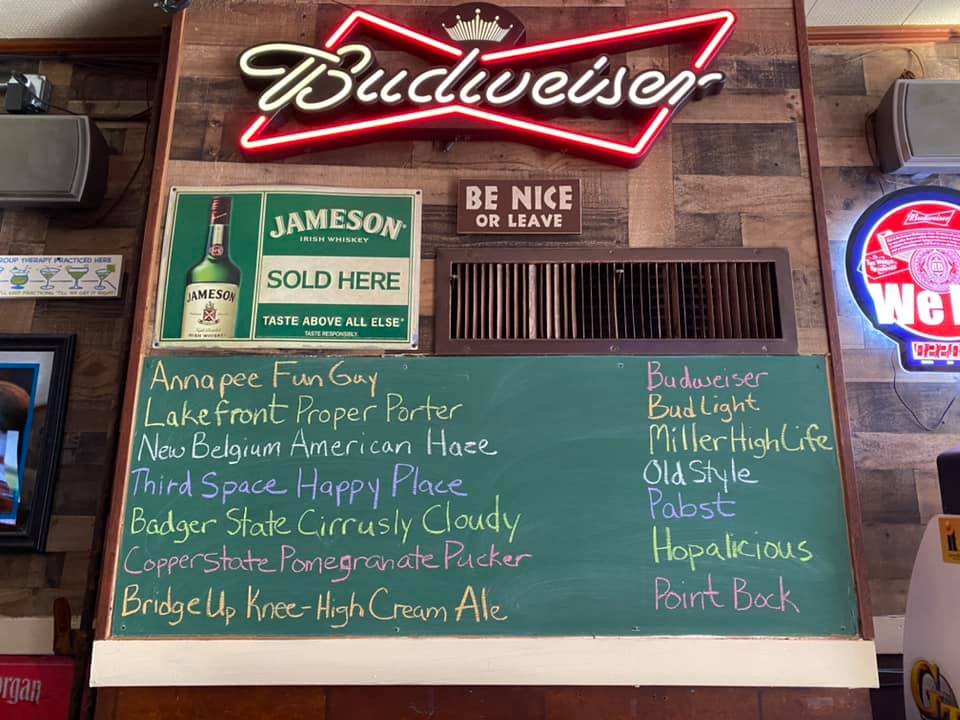 Budweiser
JAMESON
IRISH WHISKEY
SOLD HERE
TASTE ABOVE ALL ELSE
TASTE RESPONSIBLY.
JAMESON
IRISH WHISKEY
BE NICE
OR LEAVE
ROUP THERAPY PRACTICED HERE
Budweiser
We
Annapee Fun Guy
Lakefront Proper Porter
New Belgium American Haze
Third Space Happy Place
Badger State Cirrusly Cloudy
Copperstate Pomegranate Pucker
Bridge Up Knee-High Cream Ale
Budweiser
Bud Light
Miller High Life
Old Style
Pabst
Hopalicious
Point Bock
organ